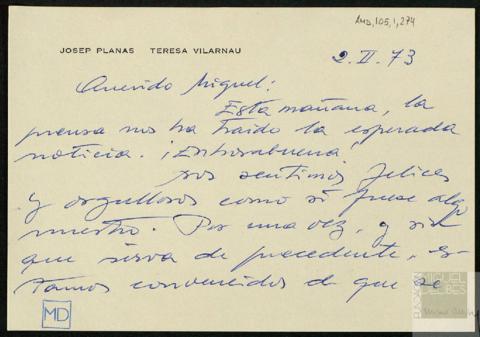 AMD,105,1,274
JOSEP PLANAS TERESA VILARNAU
2. II. 73
Querido Miguel:
Esta mañana, la
prensa nos ha traido la esperada
noticia. ¡Enhorabuena!
Nos sentimos felices
y orgullosos como si fuese algo
nuestro. Por una vez, y sin
que sirva de precedente, es-
tamos convencidos de que se
MD
FUNDACIÓN
MIGUEL
DELIBES